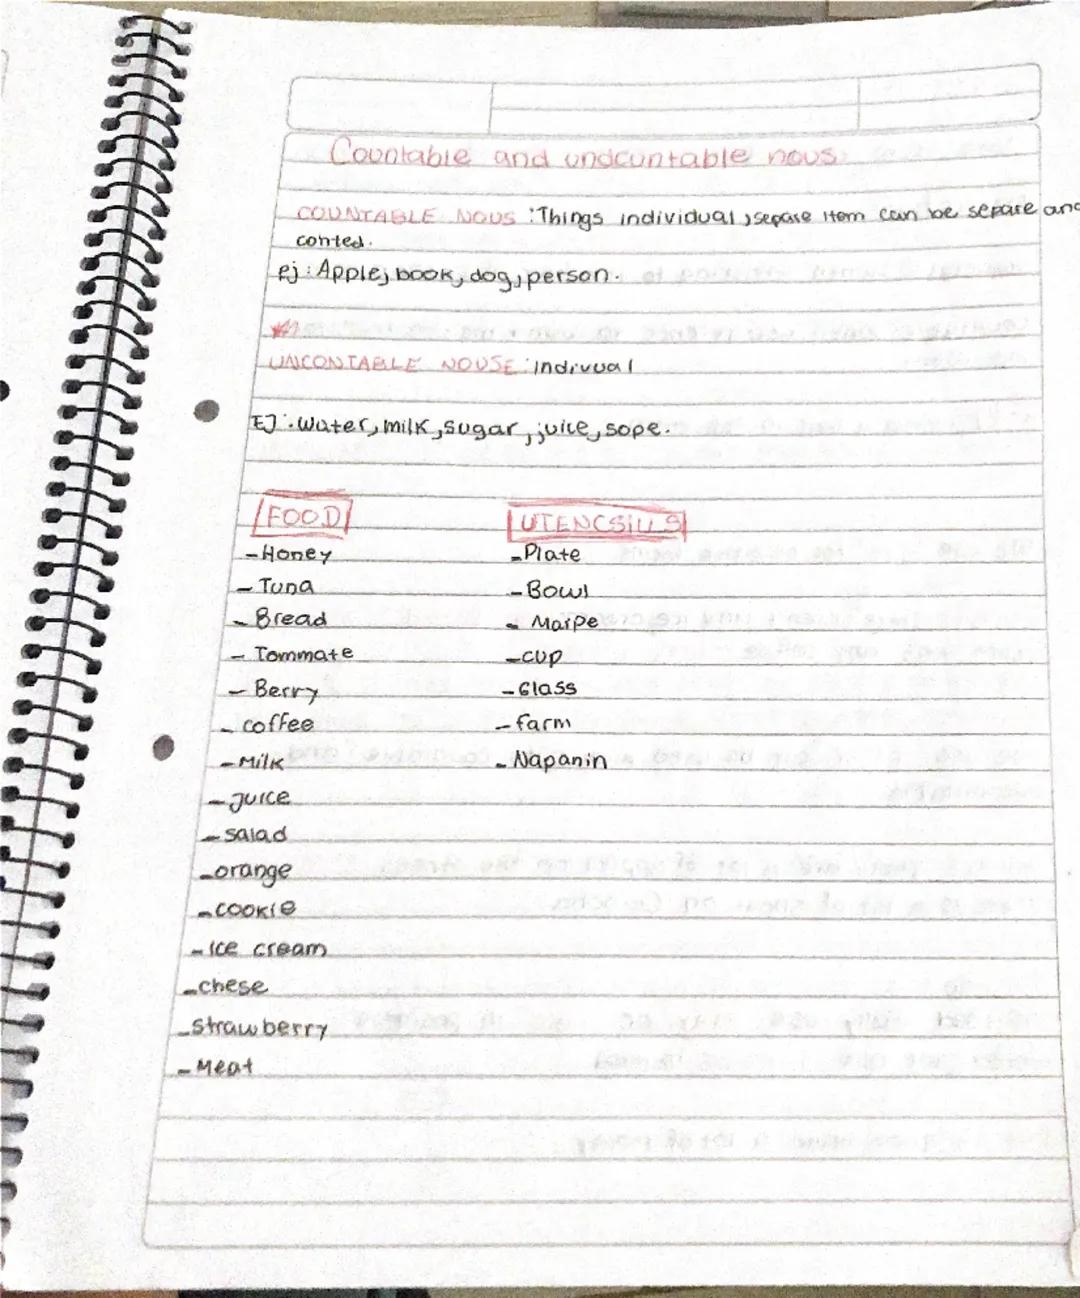 Countable and undcuntable nous
COUNTABLE NOUS : Things individual, sepase item can be separe and
conted.
ej: Apple, book, dog, person.
UNCONTABLE NOUSE: indivual
EJ: Water, milk, sugar, juice, sope.
FOOD UTENCSILLS
- Honey - Plate
- Tuna - Bowl
- Bread - Marpe
- Tommate - cup
- Berry - Glass
- coffee - farm
- Milk - Napanin
- juice
- salad
- orange
- cookie
- Ice cream
- chese
- strawberry
- Meat